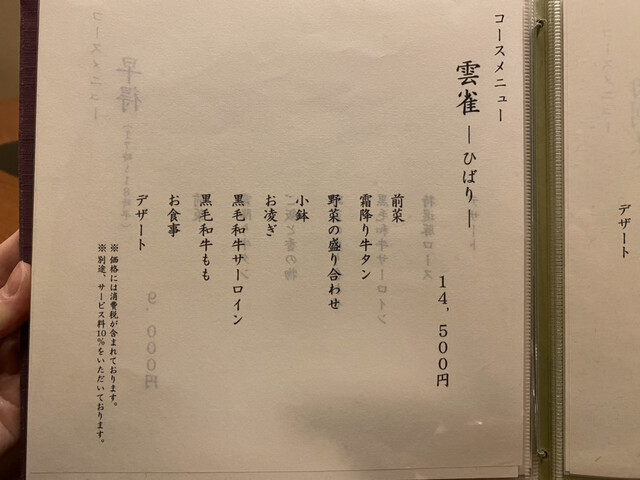 コースメニュー
雲雀 ―ひばり―
14,500円
前菜
霜降り牛タン
野菜の盛り合わせ
小鉢
お凌ぎ
黒毛和牛サーロイン
黒毛和牛もも
お食事
デザート
※価格には消費税が含まれております。
※別途、サービス料10%をいただいております。
デザート